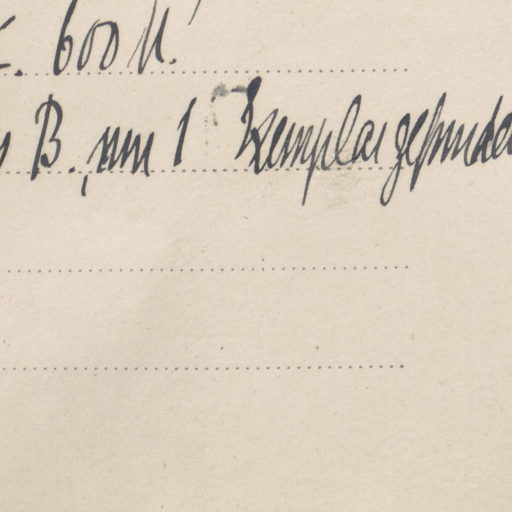 . 600 K.
B., nun 1 Exemplar gefunden